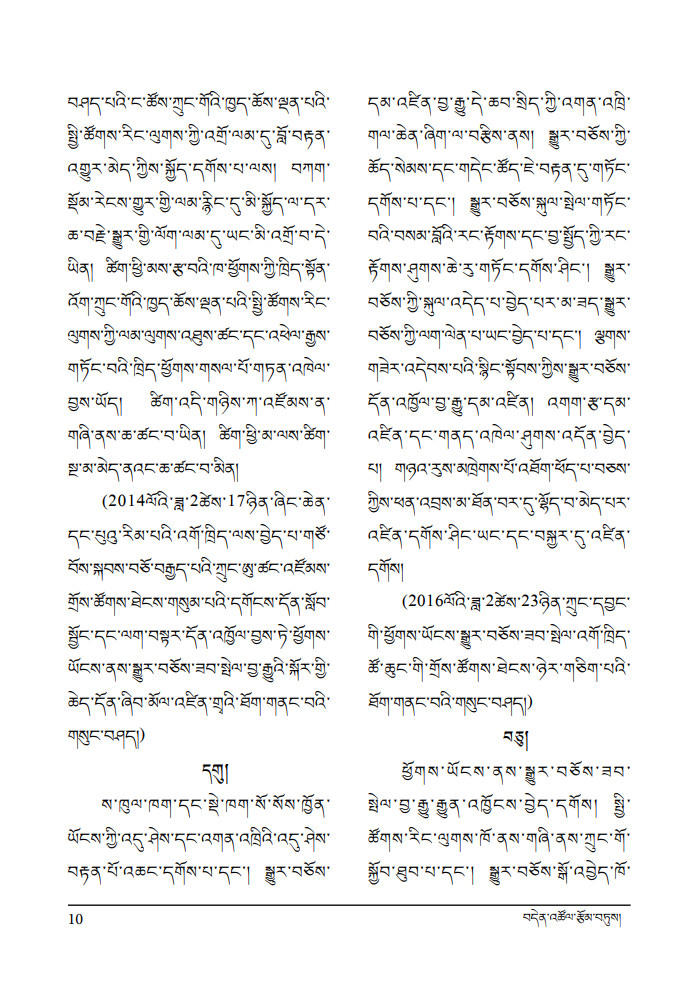 བཤད་པའི་ང་ཚོས་ཀྲུང་གོའི་ཁྱད་ཆོས་ལྡན་པའི་
སྤྱི་ཚོགས་རིང་ལུགས་ཀྱི་འགྲོ་ལམ་དུ་བློ་བརྟན་
འགྱུར་མེད་ཀྱིས་སྐྱོད་དགོས་པ་ལས། བཀག་
སྡོམ་རེངས་གྱུར་གྱི་ལམ་རྙིང་དུ་མི་སྐྱོད་ལ་དར་
ཆ་བརྗེ་སྒྱུར་གྱི་ལོག་ལམ་དུ་ཡང་མི་འགྲོ་བ་དེ་
ཡིན། ཚིག་ཕྱི་མས་རྩ་བའི་ཁ་ཕྱོགས་ཀྱི་ཁྲིད་སྟོན་
འོག་ཀྲུང་གོའི་ཁྱད་ཆོས་ལྡན་པའི་སྤྱི་ཚོགས་རིང་
ལུགས་ཀྱི་ལམ་ལུགས་འཐུས་ཚང་དང་འཕེལ་རྒྱས་
གཏོང་བའི་ཁྲིད་ཕྱོགས་གསལ་པོ་གཏན་འཁེལ་
བྱས་ཡོད། ཚིག་འདི་གཉིས་ཀ་འཛོམས་ན་
གཞི་ནས་ཆ་ཚང་བ་ཡིན། ཚིག་ཕྱི་མ་ལས་ཚིག་
སྔ་མ་མེད་ནའང་ཆ་ཚང་བ་མིན།
(2014ལོའི་ཟླ་2ཚེས་17ཉིན་ཞིང་ཆེན་
དང་པུའུ་རིམ་པའི་འགོ་ཁྲིད་ལས་བྱེད་པ་གཙོ་
བོས་སྐབས་བཅོ་བརྒྱད་པའི་ཀྲུང་ཨུ་ཚང་འཛོམས་
གྲོས་ཚོགས་ཐེངས་གསུམ་པའི་དགོངས་དོན་སློབ་
སྦྱོང་དང་ལག་བསྟར་དོན་འཁྱོལ་བྱས་ཏེ་ཕྱོགས་
ཡོངས་ནས་སྒྱུར་བཅོས་ཟབ་སྤེལ་བྱ་རྒྱུའི་སྐོར་གྱི་
ཆེད་དོན་ཞིབ་མོལ་འཛིན་གྲྭའི་ཐོག་གནང་བའི་
གསུང་བཤད།)
དགུ།
ས་ཁུལ་ཁག་དང་སྡེ་ཁག་སོ་སོས་ཁྱོན་
ཡོངས་ཀྱི་འདུ་ཤེས་དང་འགན་འཁྲིའི་འདུ་ཤེས་
བརྟན་པོ་འཆང་དགོས་པ་དང་། སྒྱུར་བཅོས་
དམ་འཛིན་བྱ་རྒྱུ་དེ་ཆབ་སྲིད་ཀྱི་འགན་འཁྲི་
གལ་ཆེན་ཞིག་ལ་བརྩིས་ནས། སྒྱུར་བཅོས་ཀྱི་
ཆོད་སེམས་དང་གདེང་ཚོད་ཇེ་བརྟན་དུ་གཏོང་
དགོས་པ་དང་། སྒྱུར་བཅོས་སྐུལ་སྤེལ་གཏོང་
བའི་བསམ་བློའི་རང་རྟོགས་དང་བྱ་སྤྱོད་ཀྱི་རང་
རྟོགས་ཤུགས་ཆེ་རུ་གཏོང་དགོས་ཤིང་། སྒྱུར་
བཅོས་ཀྱི་སྐུལ་འདེད་པ་བྱེད་པར་མ་ཟད་སྒྱུར་
བཅོས་ཀྱི་ལག་ལེན་པ་ཡང་བྱེད་པ་དང་། ལྕགས་
གཟེར་འདེབས་པའི་སྙིང་སྟོབས་ཀྱིས་སྒྱུར་བཅོས་
དོན་འཁྱོལ་བྱ་རྒྱུ་དམ་འཛིན། འགག་རྩ་དམ་
འཛིན་དང་གནད་འཁེལ་ཤུགས་འདོན་བྱེད་
པ། གཉའ་རུས་མཁྲེགས་པོ་འཐོག་ཕོད་པ་བཅས་
ཀྱིས་ཕན་འབྲས་མ་ཐོན་བར་དུ་ལྷོད་བ་མེད་པར་
འཛིན་དགོས་ཤིང་ཡང་དང་བསྐྱར་དུ་འཛིན་
དགོས།
(2016ལོའི་ཟླ་2ཚེས་23ཉིན་ཀྲུང་དབྱང་
གི་ཕྱོགས་ཡོངས་སྒྱུར་བཅོས་ཟབ་སྤེལ་འགོ་ཁྲིད་
ཚོ་ཆུང་གི་གྲོས་ཚོགས་ཐེངས་ཉེར་གཅིག་པའི་
ཐོག་གནང་བའི་གསུང་བཤད།)
བཅུ།
ཕྱོགས་ཡོངས་ནས་སྒྱུར་བཅོས་ཟབ་
སྤེལ་བྱ་རྒྱུ་རྒྱུན་འཁྱོངས་བྱེད་དགོས། སྤྱི་
ཚོགས་རིང་ལུགས་ཁོ་ནས་གཞི་ནས་ཀྲུང་གོ་
སྐྱོབ་ཐུབ་པ་དང་། སྒྱུར་བཅོས་སྒོ་འབྱེད་ཁོ་
10
བདེན་འཚོལ་རྩོམ་བཏུས།